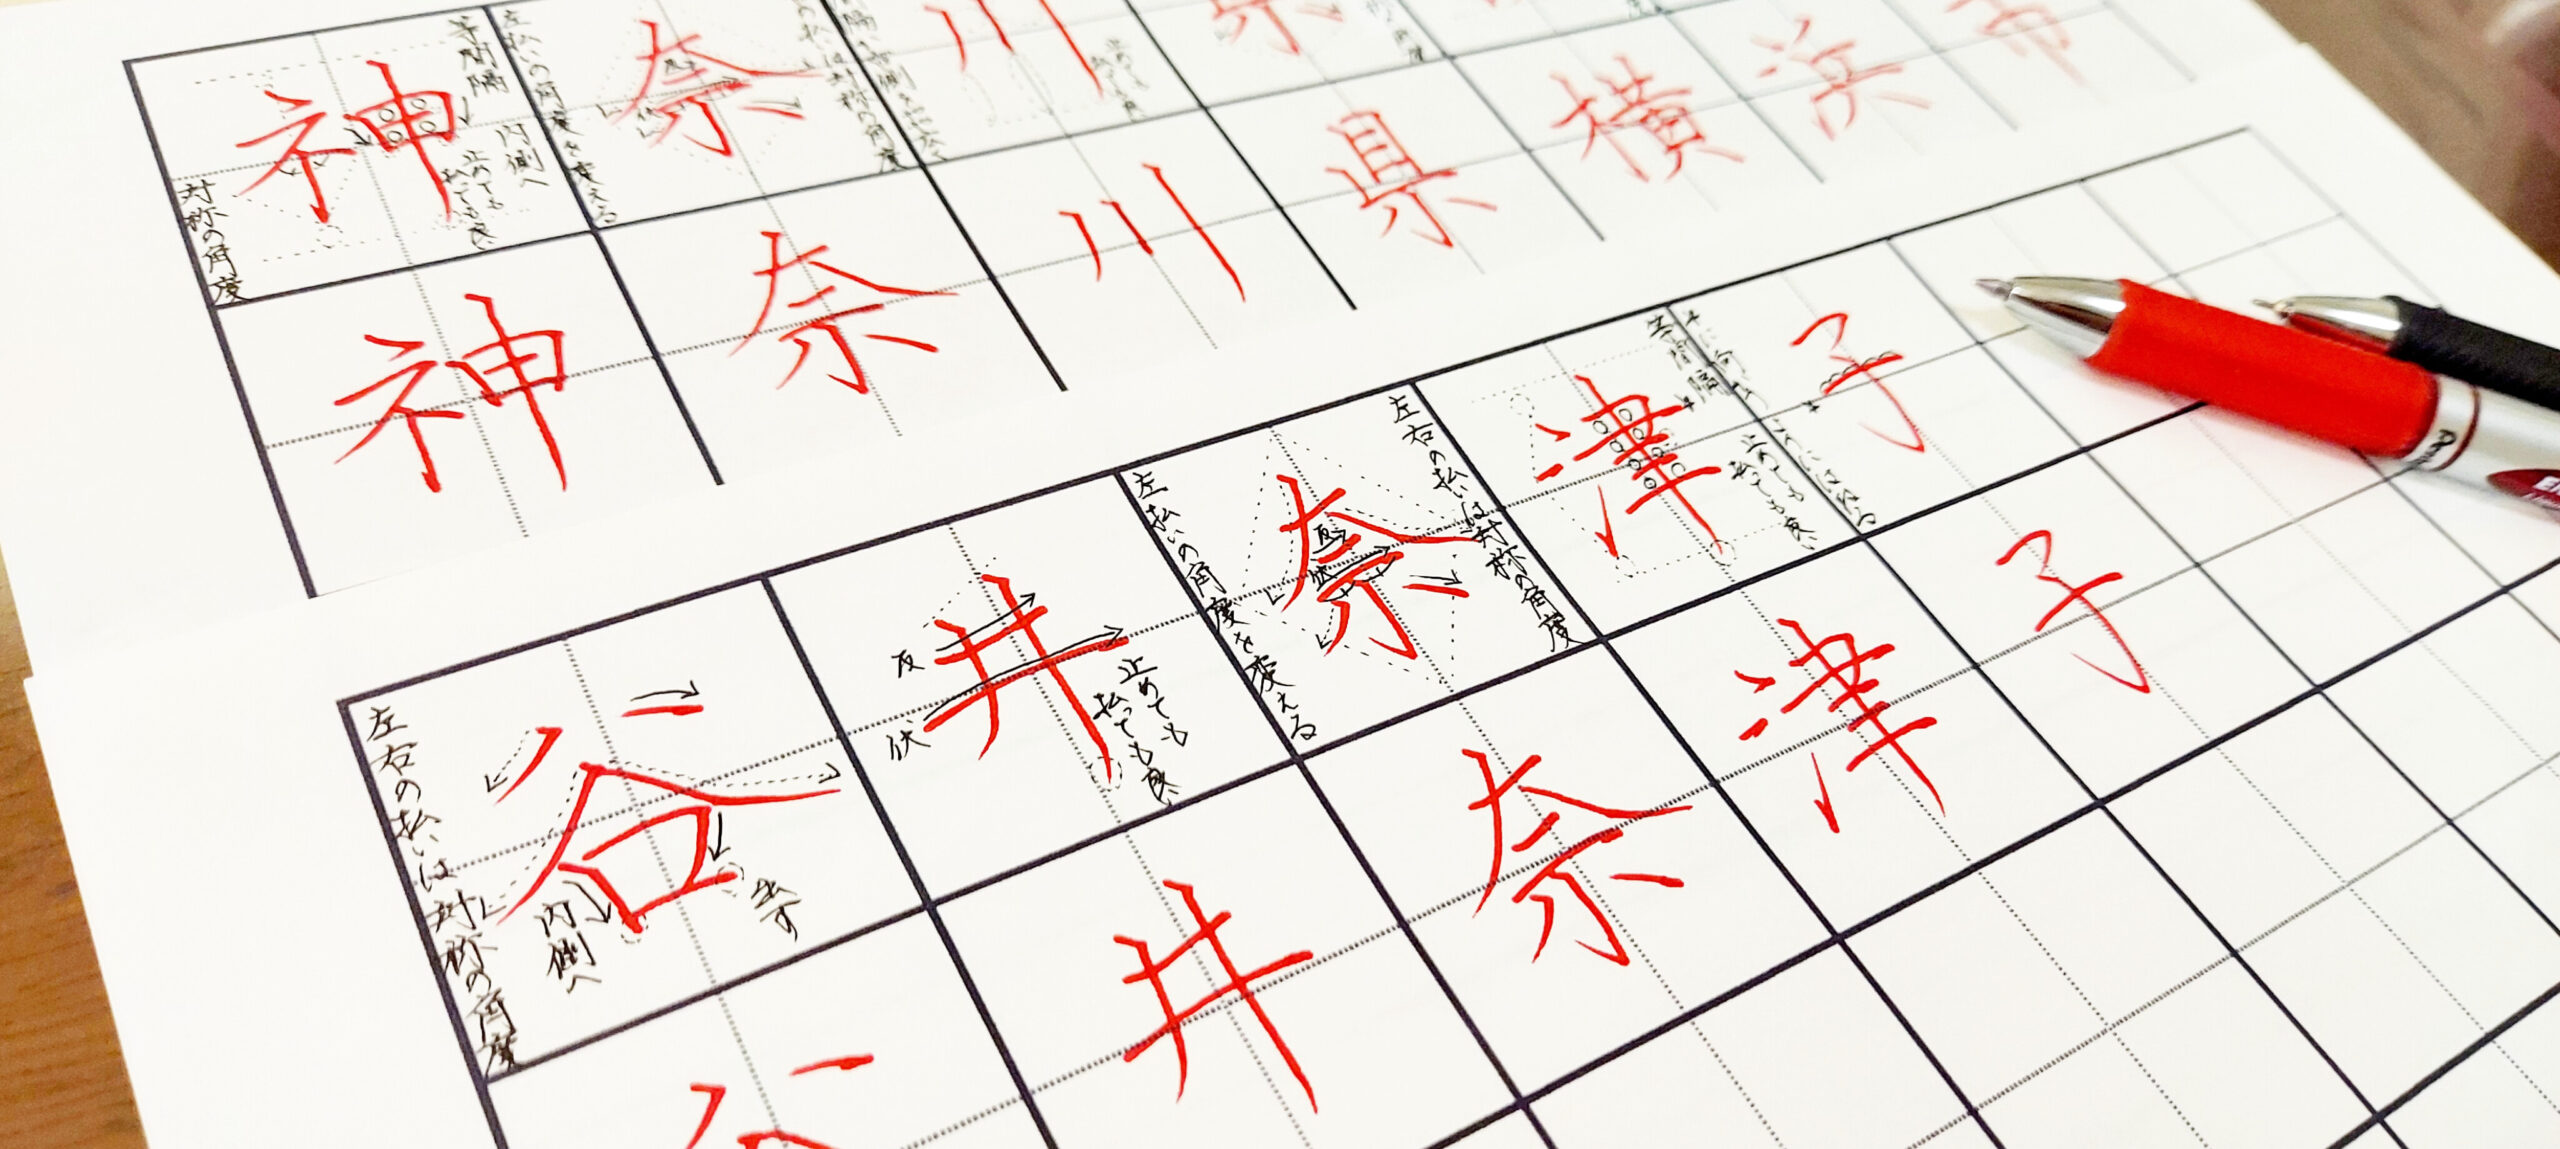 神奈川県
等間隔
内側へ
止めても
払っても良い
対称の角度
左払いの角度を変える
払いは対称の角度
神奈川県横浜市
谷井奈津子
左右の払いは対称の角度
内側へ
出す
反
伏
止めても
払っても良い
左払いの角度を変える
左右の払いは対称の角度
反
伏
等間隔
止めても
払っても良い
谷井奈津子